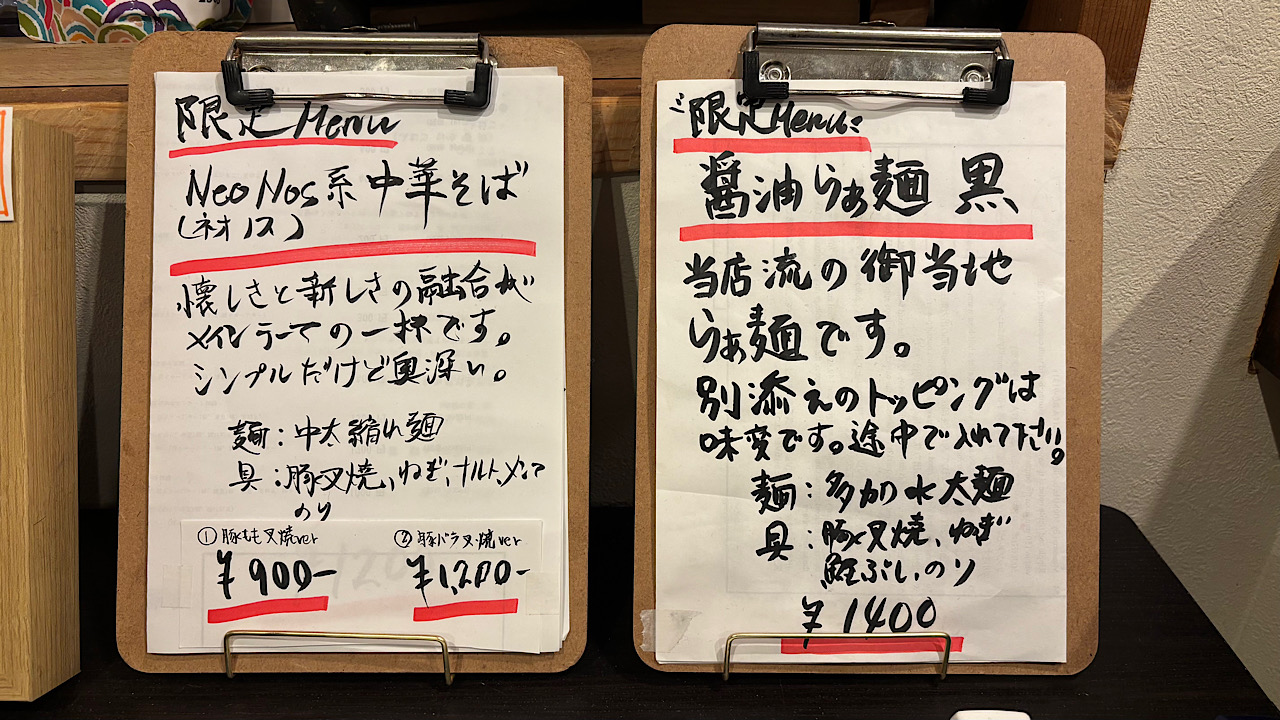 限定Menu
NeoNos系中華そば
(ネオノス)
懐しさと新しさの融合が
メインテーマの一杯です。
シンプルだけど奥深い。
麺：中太縮れ麺
具：豚叉焼、ねぎ、ナルト、メンマ
のり
①豚もも叉焼ver
¥900-
②豚バラ叉焼ver
¥1,200-
限定Menu
醤油らぁ麺 黒
当店流の御当地
らぁ麺です。
別添えのトッピングは
味変です。途中で入れて下さい。
麺：多加水太麺
具：豚叉焼、ねぎ
鰹ぶし、のり
¥1400